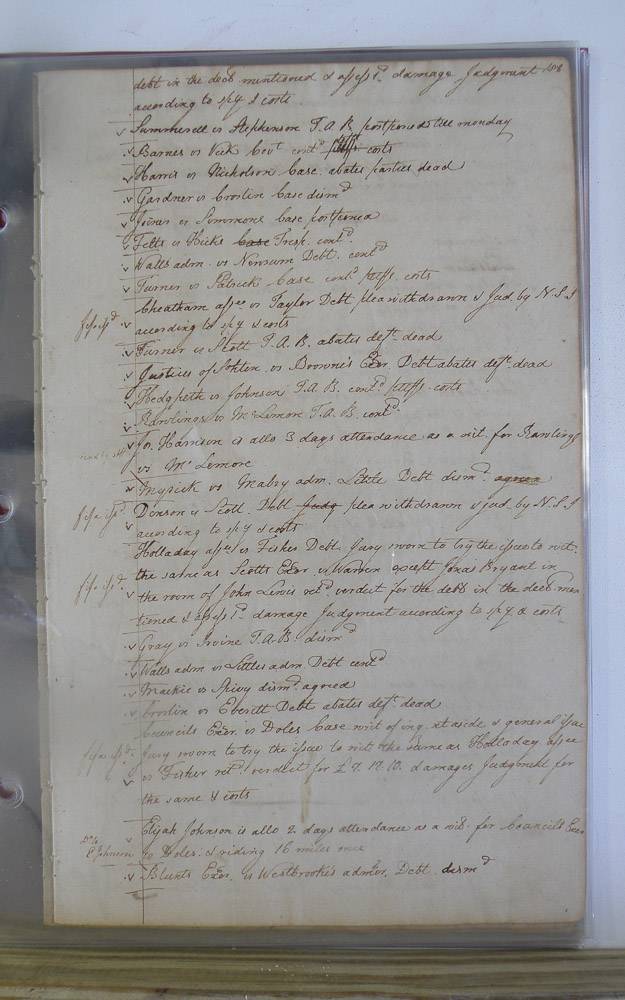 debt in the decl mentioned & assess 1d. damage Judgment 108
according to spy & costs
Summerell vs Stephenson T.A.B. postponed till monday
Barnes vs Vick Covt contd pltffs costs
Harris vs Nicholson Case abates parties dead
Gardner vs Croslin Case dismd
Joiner vs Simmons Case postponed
Felts vs Hicks Case Tresp. contd.
Watts adm. vs Newsum Debt. contd
Turner vs Patrick Case contd pltffs costs
Cheatham assee vs Taylor Debt plea withdrawn & Jud. by N.S.I
fi fa issd. according to spy & costs
Turner vs Scott T.A.B. abates deft. dead
Justices of Sohton vs Browne's Exor Debt abates deft. dead
Hedgpeth vs Johnson T.A.B. contd pltffs costs
Rawlings vs McLemore T.A.B. contd.
Jo. Harrison is allo 3 days attendance as a wit. for Rawlings
vs McLemore
Myrick vs Mabry adm. Little Debt dismd. agreed
fi fa issd. Denson vs Scott Debt Judg plea withdrawn & jud. by N.S.I
according to spy & costs
Holladay assee vs Fisher Debt. Jury sworn to try the issue to wit:
the same as Scotts Exor. vs Warren except Jonas Bryant in
fi fa issd. the room of John Lewis retd. verdict for the debt in the decl men
tioned & assess 1d. damage Judgment according to spy & costs
Gray vs Irvine T.A.B. dismd
Watts adm vs Littles adm Debt contd
Mackie vs Spivy dismd. agreed
Croslin vs Everitt Debt abates deft. dead
Councils Exor. vs Doles Case writ of inq. set aside & general issue
fi fa issd. Jury sworn to try the issue to wit the same as Holladay assee
vs Fisher retd. verdict for £7.17.10. damages Judgment for
the same & costs
Elijah Johnson is allo 2 days attendance as a wit. for Councils Exor
E Johnson vs Doles & riding 16 miles once
Blunts Exor. vs Westbrooke's admor. Debt dismd